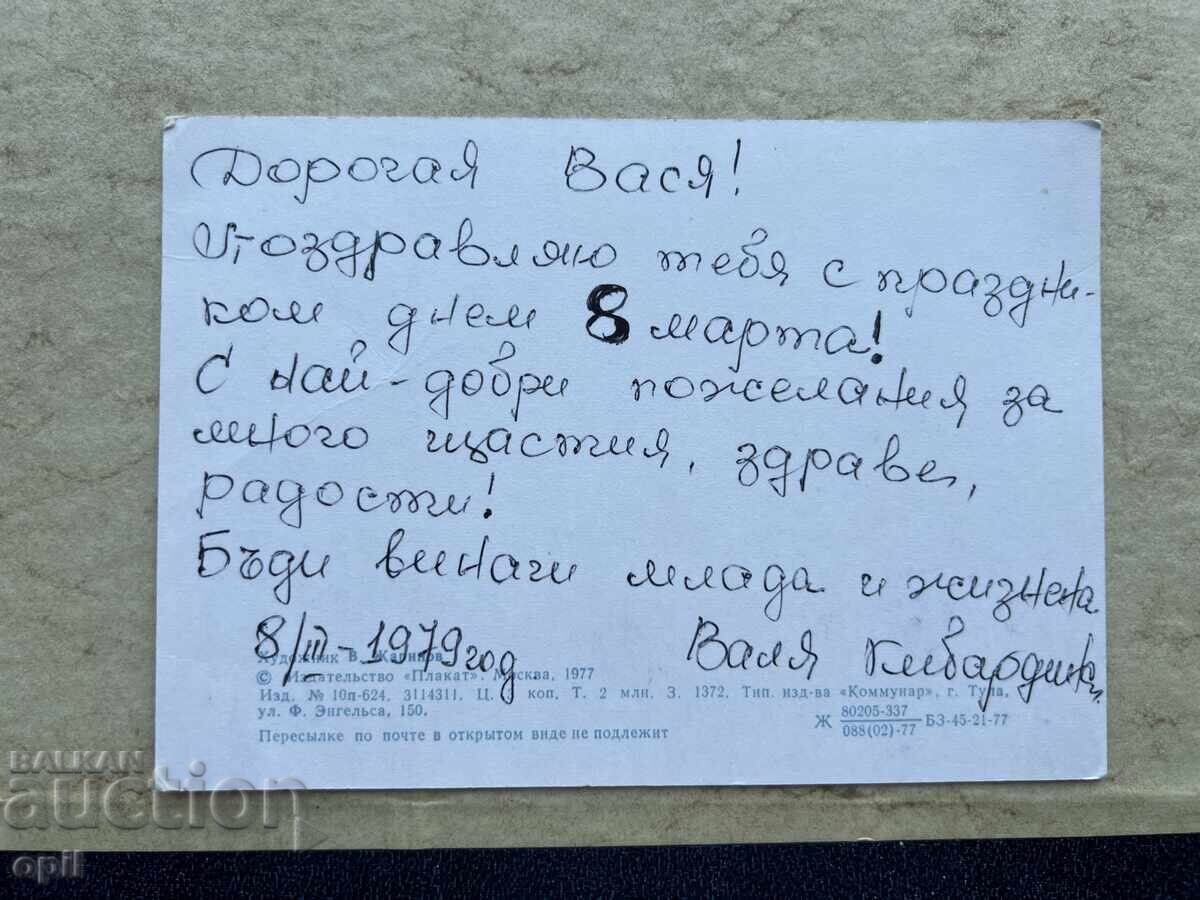 Дорогая Вася!
Поздравляю тебя с праздни-
ком днем 8 марта!
С най-добри пожелания за
много щастия, здраве,
радости!
Бъди винаги млада и жизнена
8/III-1979 год.
Валя Кибардина
Художник В.
© Издательство «Плакат». Москва, 1977
Изд. № 10п-624. 3114311. Ц. коп. Т. 2 млн. З. 1372. Тип. изд-ва «Коммунар», г. Тула,
ул. Ф. Энгельса, 150.
Ж 80205-337 БЗ-45-21-77
088(02)-77
Пересылке по почте в открытом виде не подлежит
BALKAN
auction
opil